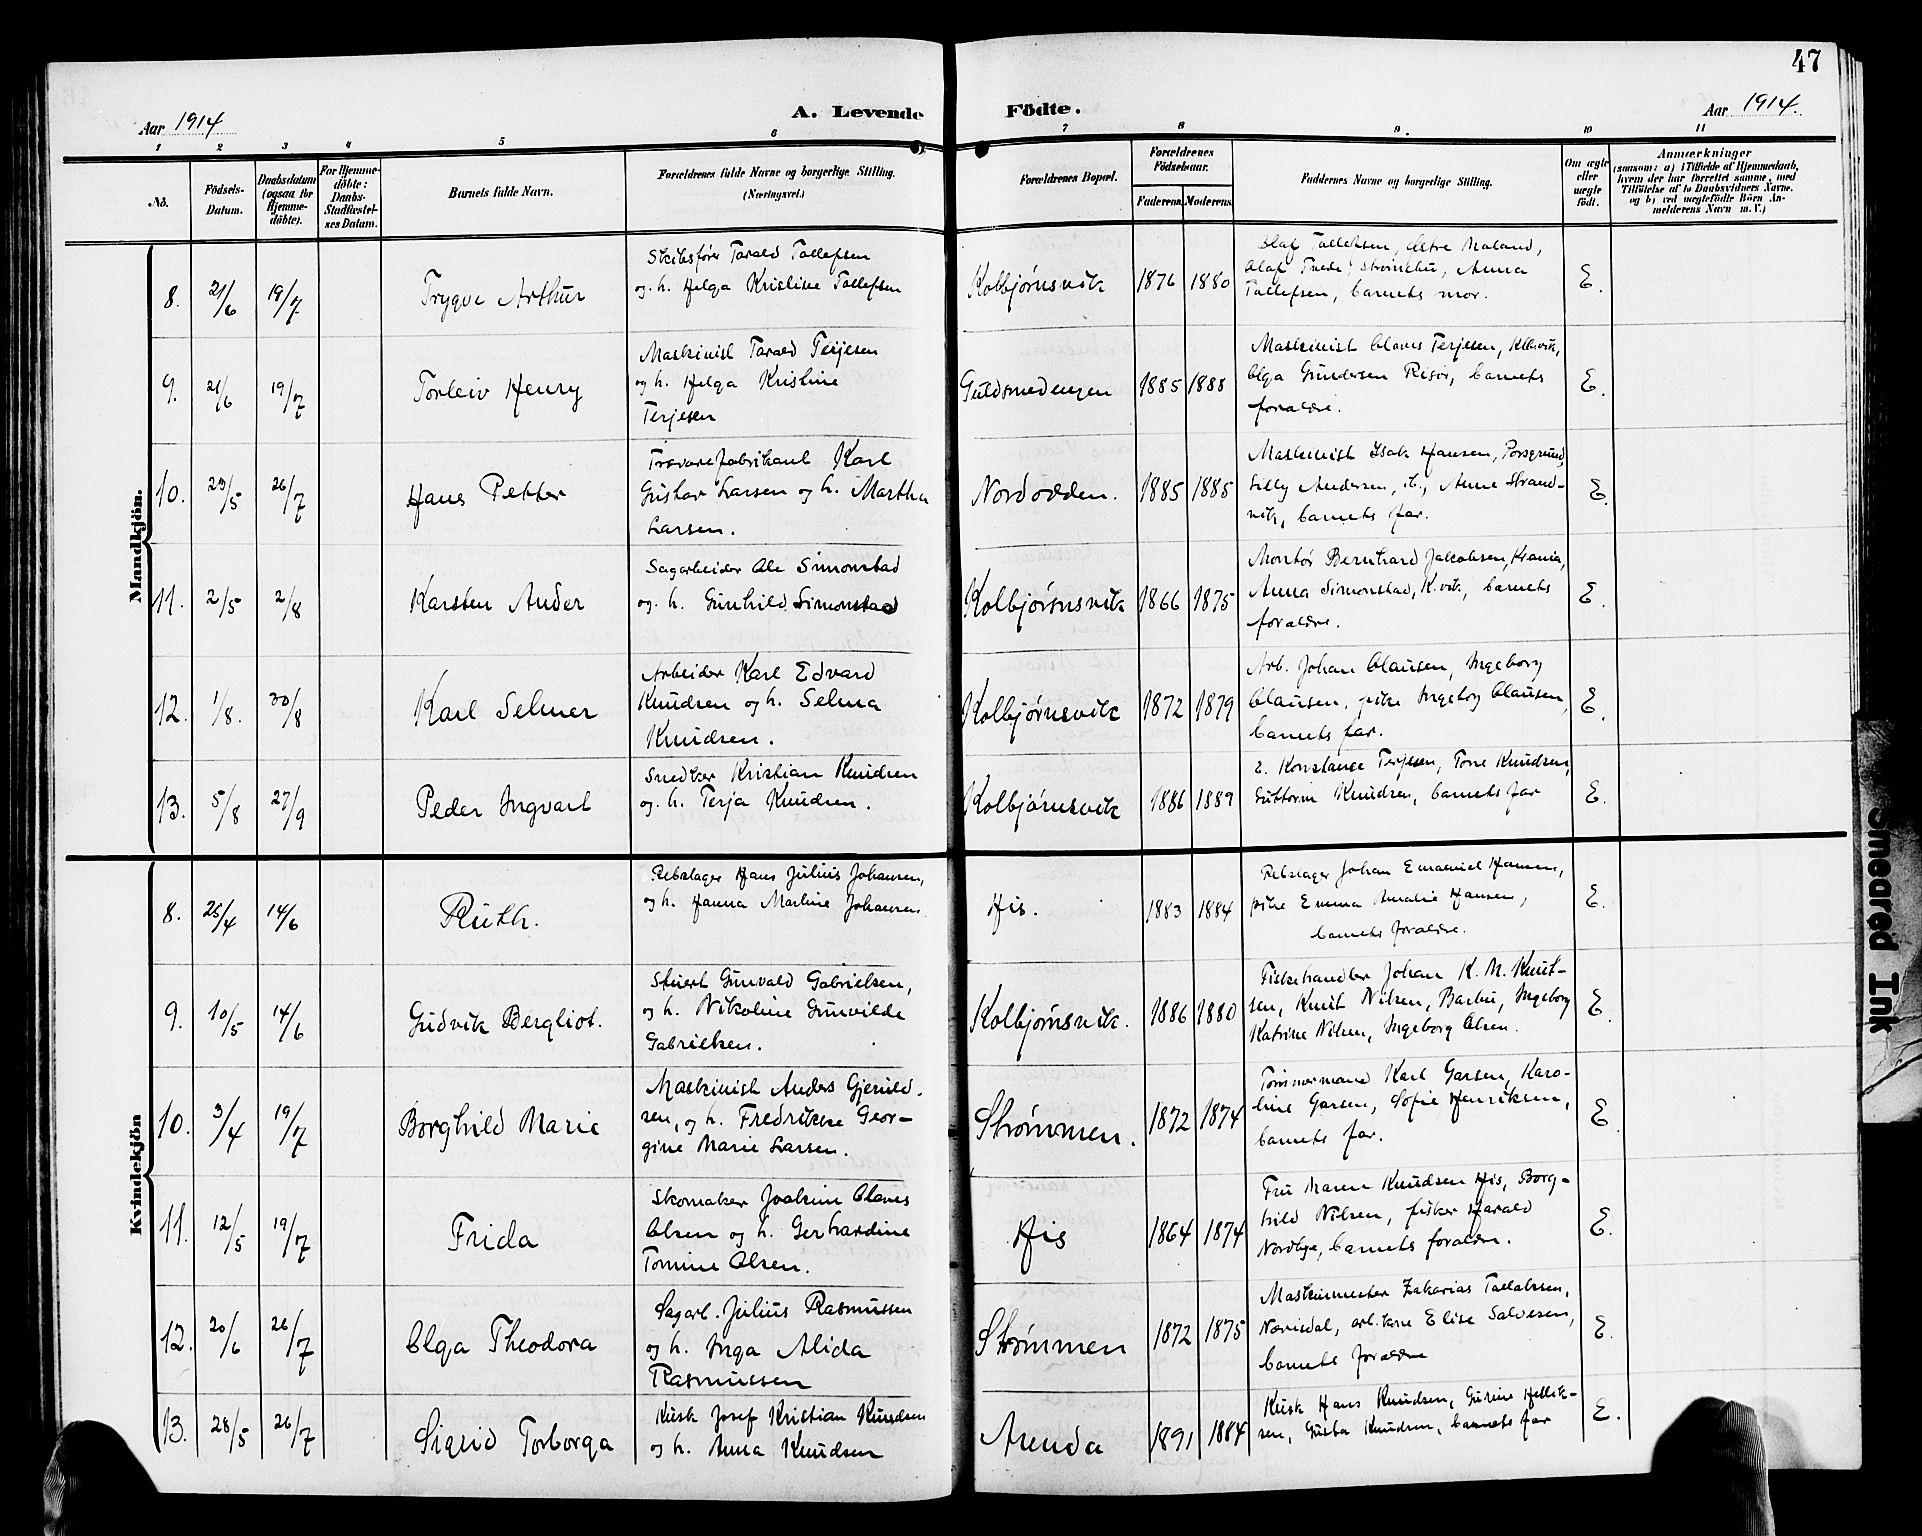 47
Aar 1914
A. Levende Födte.
Aar 1914.
1 2 3 4 5 6 7 8 9. 10 11
No.
Födsels-
Datum.
Daabsdatum
(ogsaa for
Hjemme-
döbte).
For Hjemme-
döbte:
Daabs-
Stadfæstel-
ses Datum.
Barnets fulde Navn.
Forældrenes fulde Navne og borgerlige Stilling.
(Næringsvei.)
Forældrenes Bopæl.
Forældrenes
Födselsaar.
Faderens. Moderens.
Faddernes Navne og borgerlige Stilling.
Om ægte
eller
uægte
födt.
Anmærkninger
(saasom: a) i Tilfælde af Hjemmedaab,
hvem der har forrettet samme, med
Tilföielse af to Daabsvidners Navne.
og b) ved uægtefödte Börn An-
melderens Navn m. V.)
Mandkjön.
8. 21/6 19/7 Trygve Arthur
Skibsfører Tarald Tallefsen
og h. Helga Kristine Tallefsen
Kolbjørnsvik 1876 1880
Olaf Tallefsen, Østre Moland,
Olaf Tvede, Strømsbu, Anna
Tallefsen, barnets mor.
E.
9. 21/6 19/7 Torleiv Henry
Maskinist Tarald Terjesen
og h. Helga Kristine
Terjesen
Guldsmedengen 1885 1888
Maskinist Olaves Terjesen, Klbvik,
Olga Gundersen Risør, barnets
forældre.
E.
10. 29/5 26/7 Hans Petter
Trævarefabrikant Karl
Gustav Larsen og h. Martha
Larsen.
Nordodden. 1885 1885
Maskinist Isak Hansen, Porsgrund,
Lilly Andersen, ib., Anne Strand-
vik, barnets far.
E.
11. 2/5 2/8 Karsten Ander
Sagarbeider Ole Simonstad
og h. Gunhild Simonstad
Kolbjørnsvik 1866 1875
Montør Bernhard Jakobsen, Krania,
Anna Simonstad, K.vik, barnets
forældre.
E.
12. 1/8. 30/8 Karl Selmer
Arbeider Karl Edvard
Knudsen og h. Selma
Knudsen.
Kolbjørnsvik 1872 1879
Arb. Johan Clausen, Ingeborg
Clausen, pike Ingeborg Clausen,
barnets far.
E.
13. 5/8 27/9 Peder Ingvart
Snedker Kristian Knudsen
og h. Terja Knudsen.
Kolbjørnsvik 1886 1889
E. Konstanse Terjesen, Tone Knudsen,
Guttorm Knudsen, barnets far
E.
Kvindekjön
8. 25/4 14/6 Ruth.
Rebslager Hans Julius Johansen,
og h. Hanna Martine Johansen
His. 1883 1884
Rebslager Johan Emanuel Hansen,
pike Emma Amalie Hansen,
barnets forældre.
E.
9. 10/5 14/6 Gudvik Bergliot.
Stuert Gunvald Gabrielsen,
og h. Nikoline Gunvilde
Gabrielsen.
Kolbjørnsvik. 1886 1880
Fiskehandler Johan K. M. Knut-
sen, Knut Nilsen, Barbu, Ingeborg
Katrine Nilsen, Ingeborg Olsen.
E.
10. 3/4 19/7 Borghild Marie
Maskinist Anders Gjeruld-
sen, og h. Fredrikke Geor-
gine Marie Larsen.
Strømmen. 1872 1874
Tømmermand Karl Garsen, Karo-
line Garsen, Sofie Henriksen,
barnets far.
E.
11. 12/5 19/7 Frida
Skomaker Joakim Olaves
Olsen og h. Gerhardine
Tomine Olsen.
His 1864 1874
Fru Maren Knudsen His, Borg-
hild Nilsen, fisker Harald
Nordbye, barnets forældre.
E.
12. 20/6 26/7 Olga Theodora
Sagarb. Julius Rasmussen
og h. Inga Alida
Rasmussen
Strømmen 1872 1875
Maskinmester Zakarias Tallaksen,
Nævisdal, arb.kone Elise Salvesen,
barnets forældre
E.
13. 28/5 26/7 Sigrid Torborga
Kusk Josef Kristian Knudsen
og h. Anna Knudsen
Arenda 1891 1884
Kusk Hans Knudsen, Gurine Hellik-
sen, Gusta Knudsen, barnets far
E.
Smeared Ink